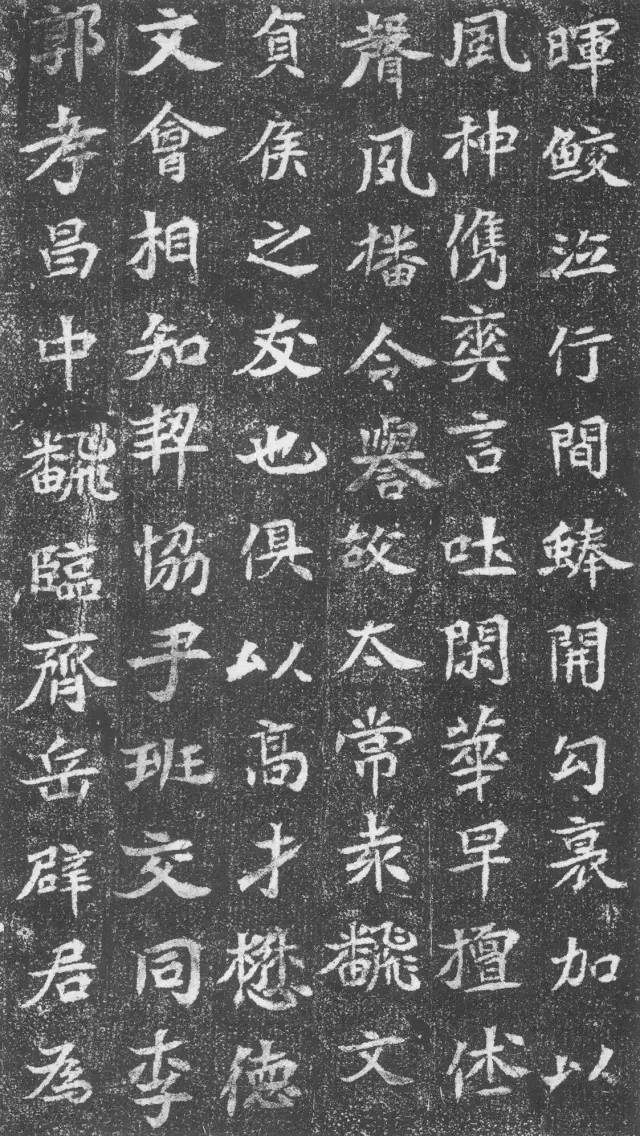 暉鮫泣行間開勾裏加以
風神儁爽言吐閑華早擅休
聲夙播令譽故太常袁飜文
貞侯之友也俱以高才懋德
文會相知契協乎班交同李
郭孝昌中飜臨齊岳辟君為